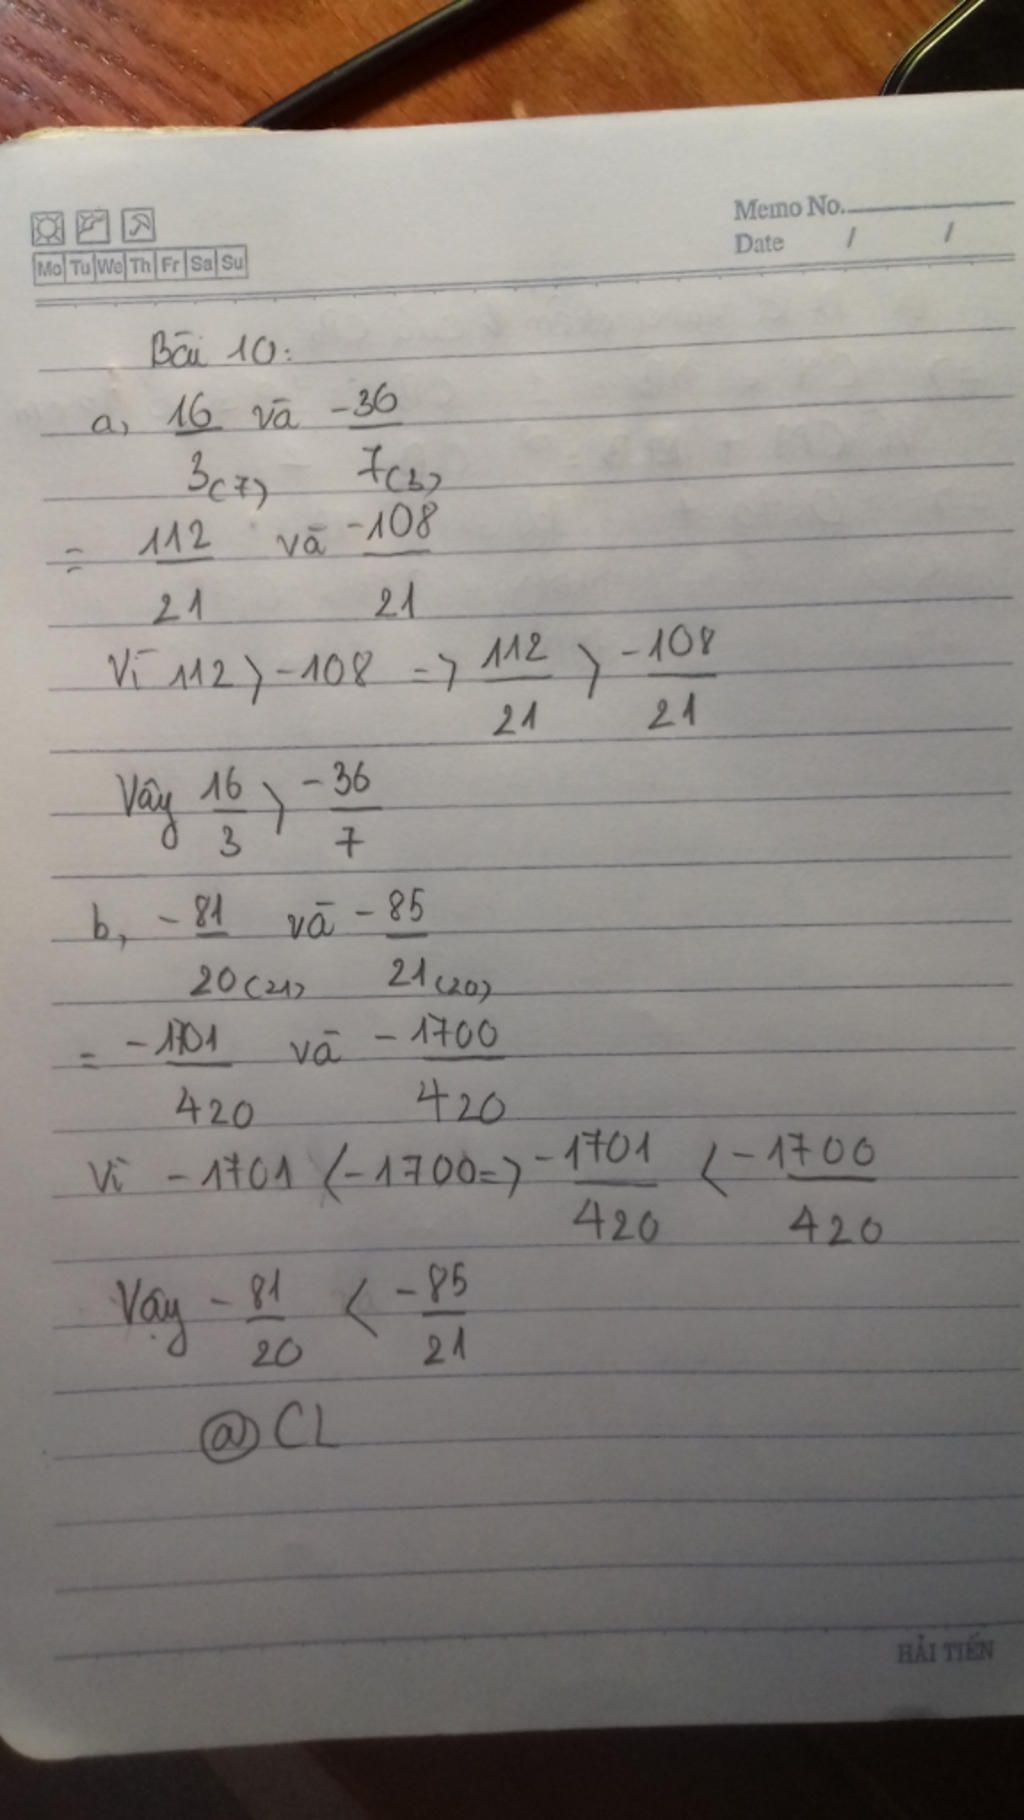 Memo No.
Date / /
Mo Tu We Th Fr Sa Su
Bài 10:
a, 16/3(7) và -36/7(3)
= 112/21 và -108/21
Vì 112 > -108 => 112/21 > -108/21
Vậy 16/3 > -36/7
b, -81/20(21) và -85/21(20)
= -1701/420 và -1700/420
Vì -1701 < -1700 => -1701/420 < -1700/420
Vậy -81/20 < -85/21
@CL
HẢI TIẾN